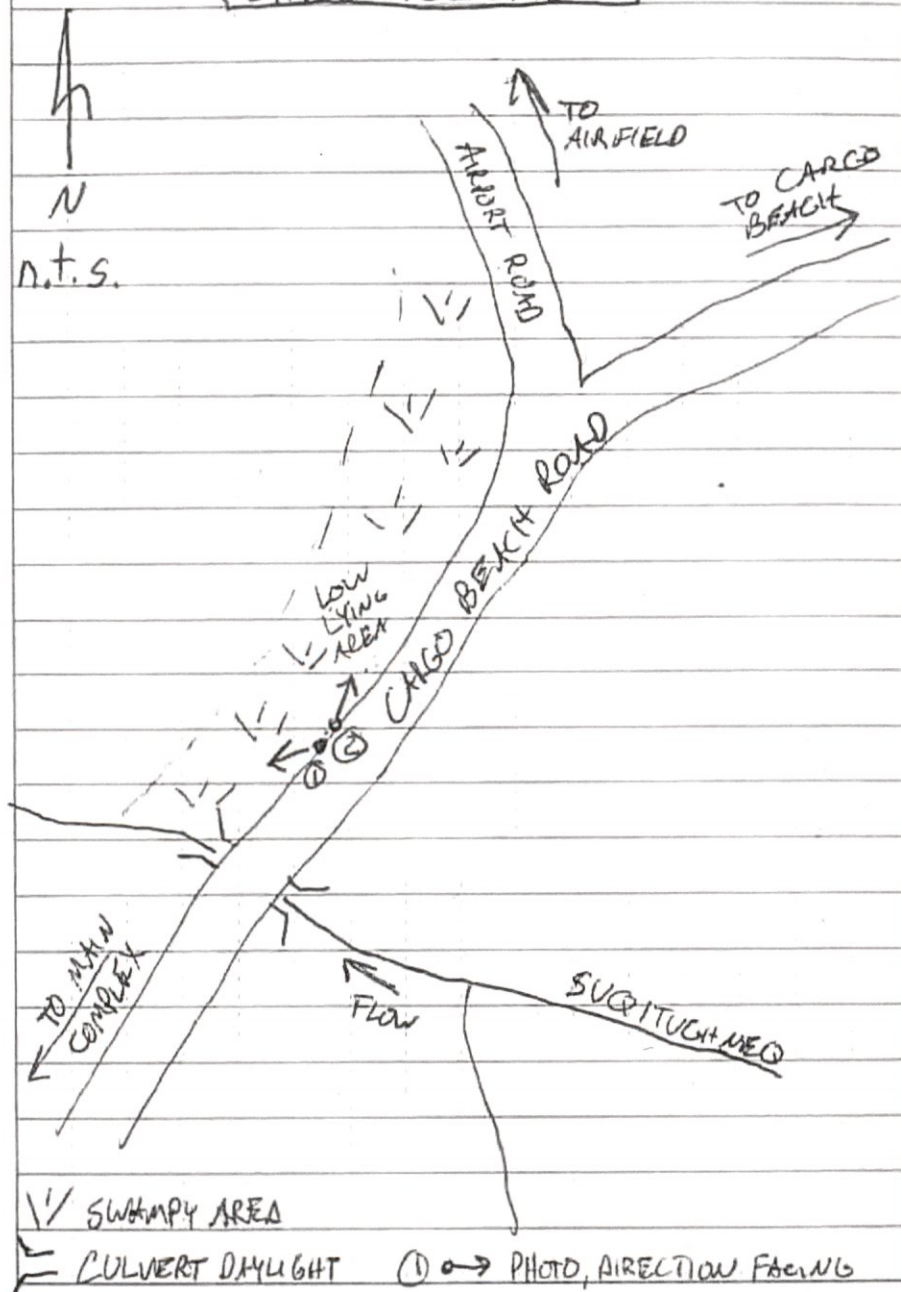 N
n.t.s.
TO
AIRFIELD
AIRPORT ROAD
TO CARGO
BEACH
CARGO BEACH ROAD
LOW
LYING
AREA
① ②
TO MAIN
COMPLEX
FLOW
SUQITUGHNEQ
SWAMPY AREA
CULVERT DAYLIGHT
① PHOTO, DIRECTION FACING